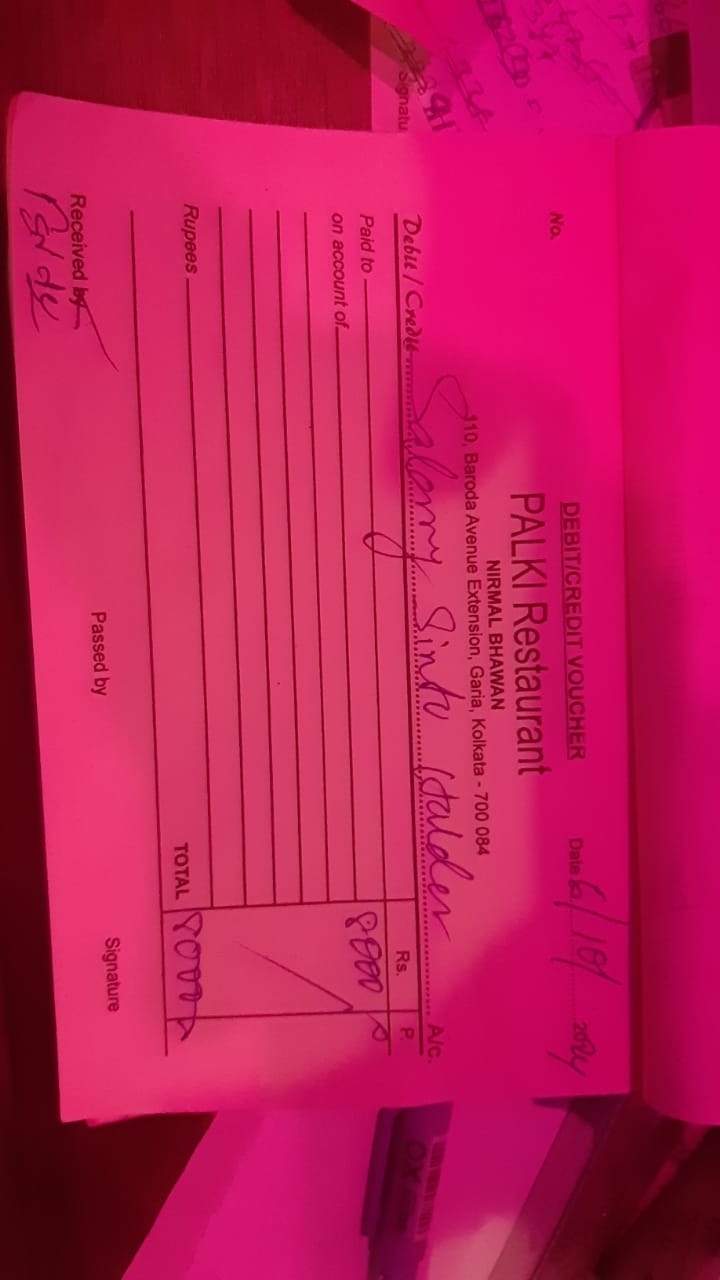 DEBIT/CREDIT VOUCHER
No.
Date 6/10/2024
PALKI Restaurant
NIRMAL BHAWAN
110, Baroda Avenue Extension, Garia, Kolkata - 700 084
Debit / Credit Salary Sintu Halder A/c.
Rs. P.
Paid to 8000
on account of
Rupees TOTAL 8000
Received by
Passed by
Signature
Signatu